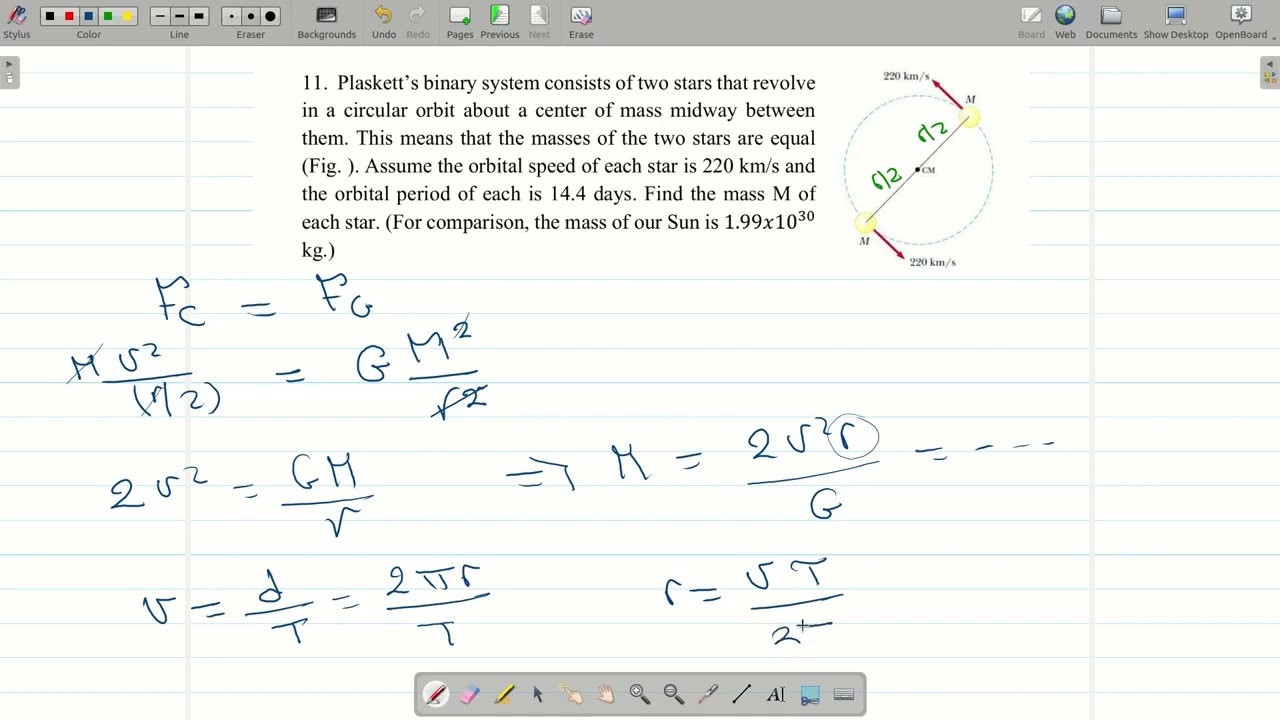 Stylus Color Line Eraser Backgrounds Undo Redo Pages Previous Next Erase Board Web Documents Show Desktop OpenBoard
11. Plaskett's binary system consists of two stars that revolve
in a circular orbit about a center of mass midway between
them. This means that the masses of the two stars are equal
(Fig. ). Assume the orbital speed of each star is 220 km/s and
the orbital period of each is 14.4 days. Find the mass M of
each star. (For comparison, the mass of our Sun is 1.99x10³⁰
kg.)
220 km/s
M
r/2
r/2
CM
M
220 km/s
F_C = F_G
M v²/(r/2) = G M²/r²
2 v² = GM/r ⇒ M = 2 v² r/G = ----
v = d/T = 2πr/T r = v T/2
AI